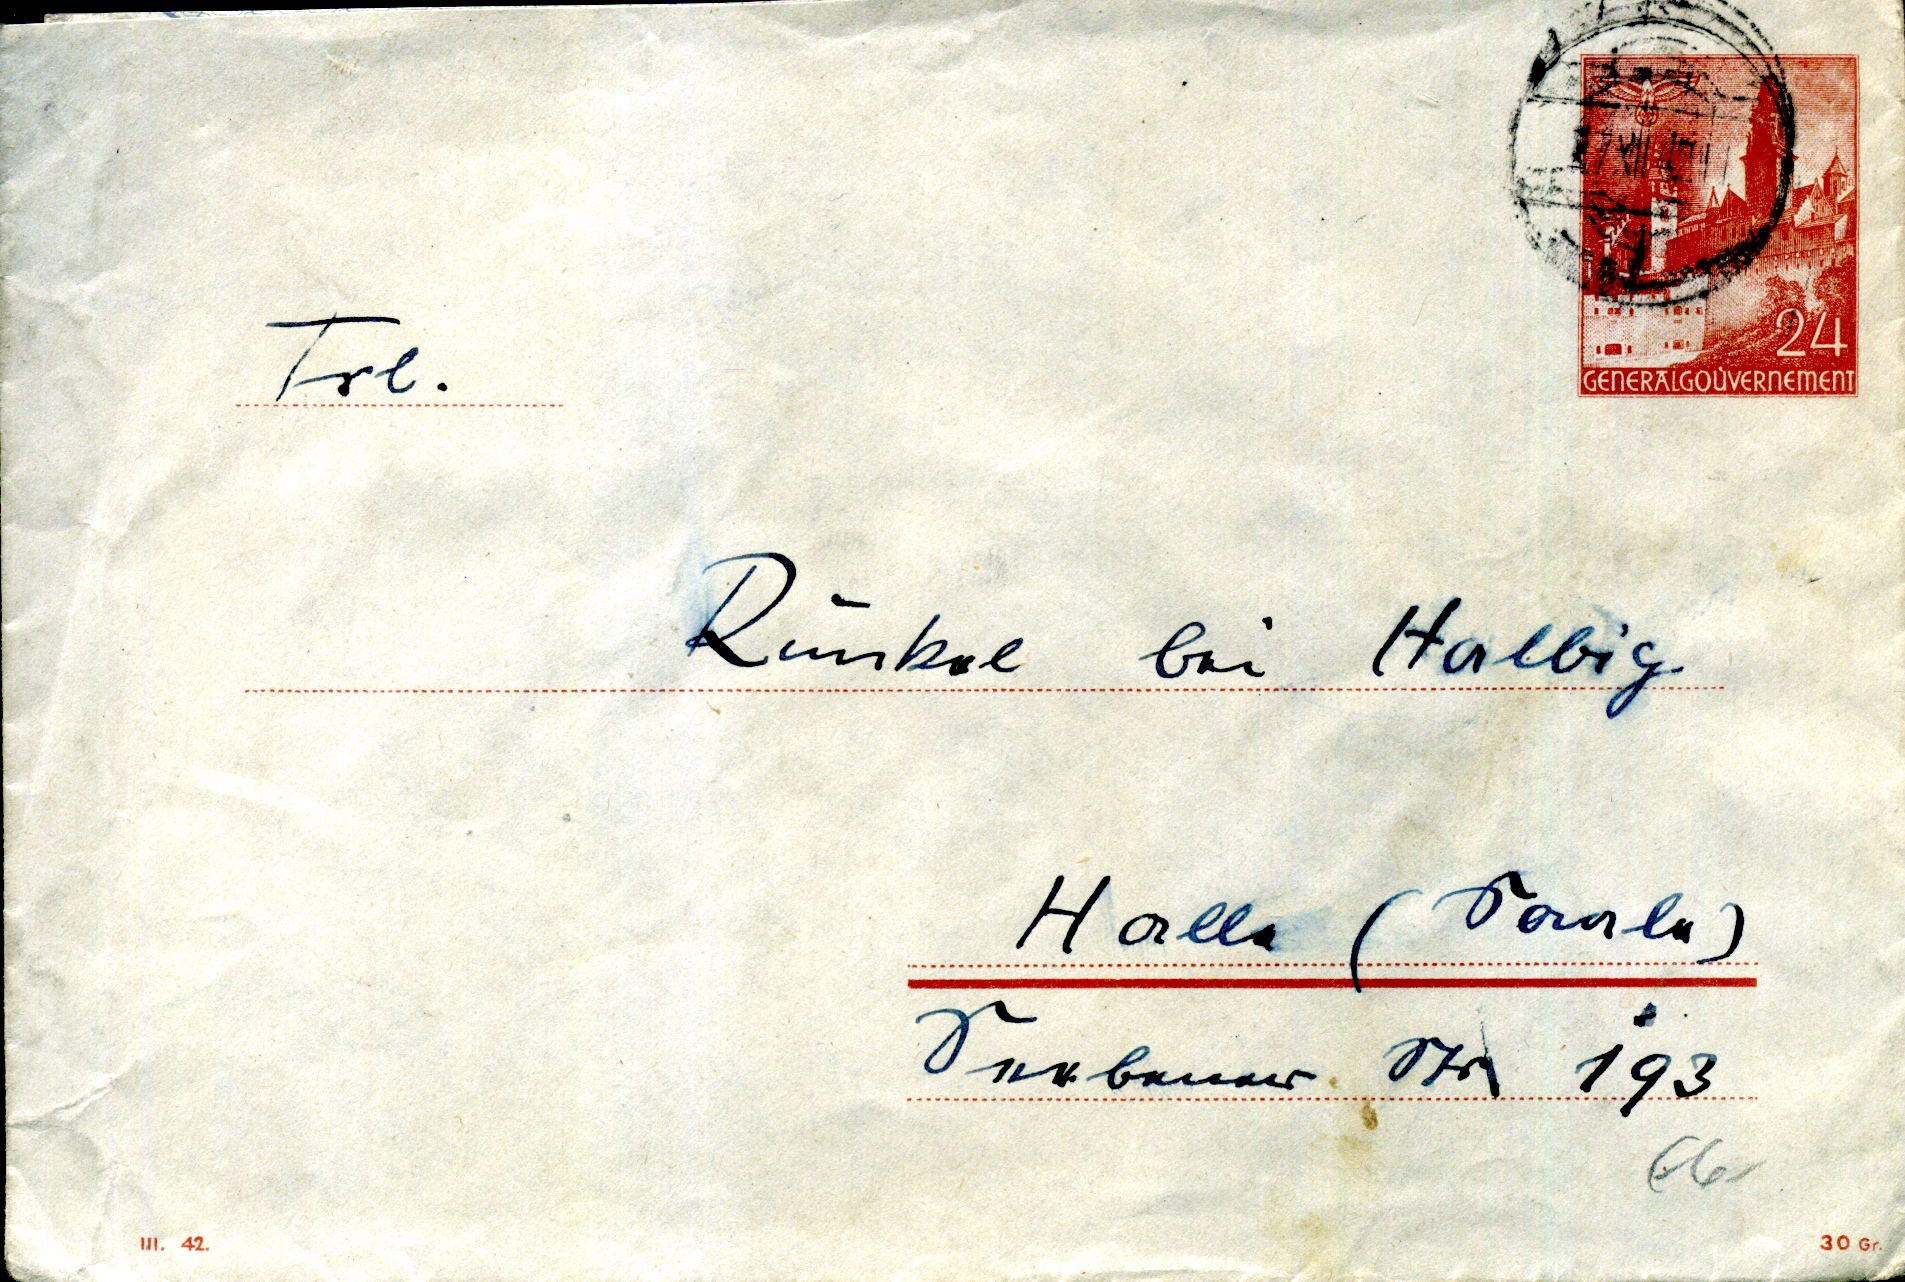 24
GENERALGOUVERNEMENT
Frl.
Runkel bei Halbig
Halle (Saale)
Seebener Str 193
III. 42.
30 Gr.